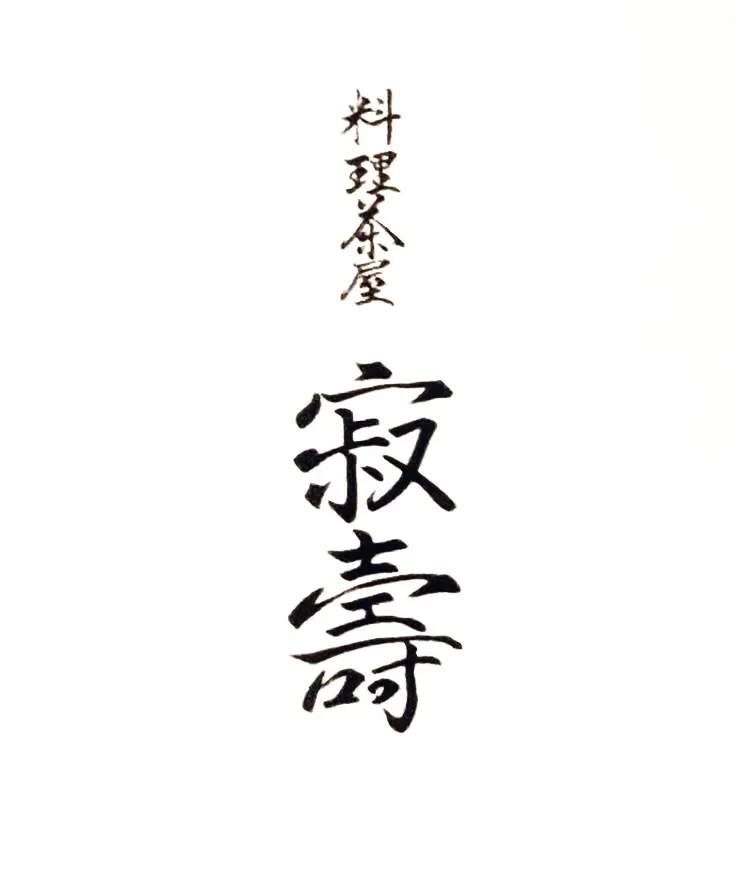 料理茶屋
寂壽